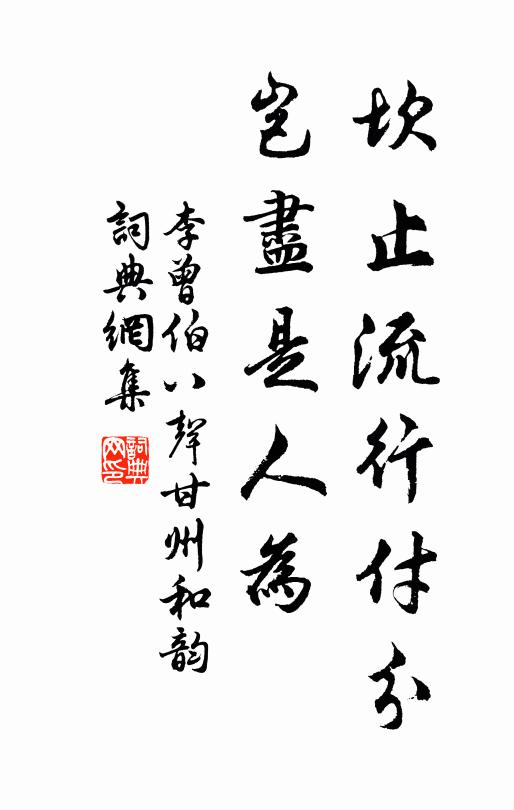 坎止流行付分
豈盡是人為
李曾伯八聲甘州和韵
詞典網集
詞典網印